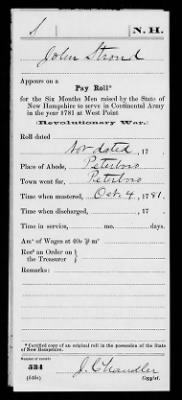 S N. H.
John Strond
Appears on a
Pay Roll*
for the Six Months Men raised by the State of
New Hampshire to serve in Continental Army
in the year 1781 at West Point
(Revolutionary War.)
Roll dated
Not dated, 17 .
Place of Abode, Peterboro
Town went for, Peterboro
Time when mustered, Oct. 4, 1781.
Time when discharged, , 17 .
Time in service, mo. days.
Am't of Wages at 40s ℔ mo
Rec'd an Order on
the Treasurer
Remarks:
*Certified copy of an original roll in the possession of the State
of New Hampshire.
Number of record:
534
J. Chandler
(545c) Copyist.